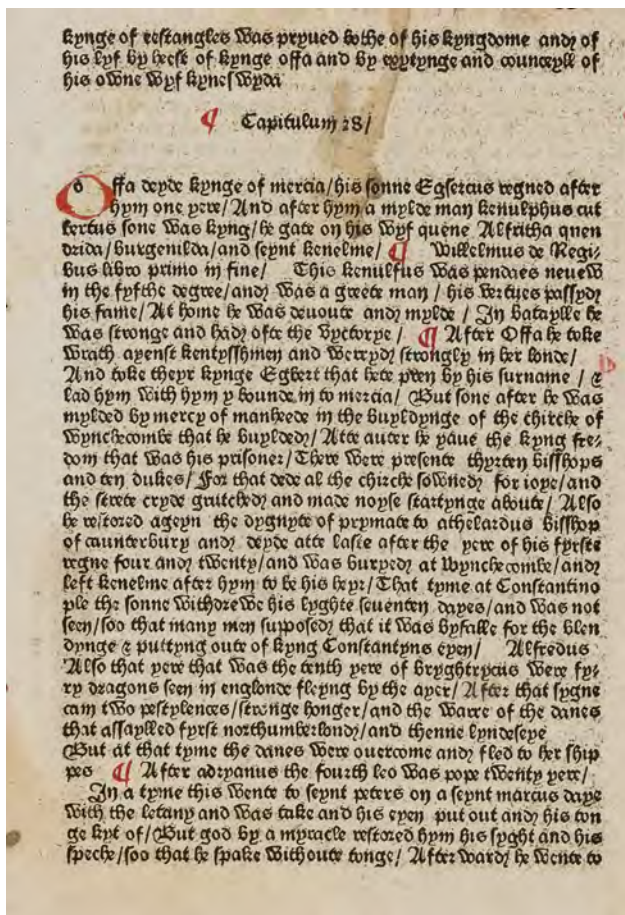 kynge of eestangles was pryued bothe of his kyngdome and of
his lyf by heest of kynge offa and by excytynge and counceyll of
his owne wyf kyneswyda
¶ Capitulum 28/
Offa deyde kynge of mercia/his sonne Egfertus regned after
hym one yere/And after hym a mylde man kenulphus cut
bertus sone was kyng/he gate on his wyf quene Alfritha quen
drida/burgenilda/and seynt kenelme/ ¶ Willelmus de Regi⸗
bus libro primo in fine/ This kenulfus was pendaes neuew
in the fyfthe degree/and was a greete man / his vertues passyd
his fame/At home he was deuoute and mylde / In bataylle he
was stronge and had ofte the vyctorye / ¶ After Offa he toke
wrath ayenst kentysshmen and werryd strongly in her londe/
And toke theyr kynge Egbert that hete pren by his surname / &
lad hym with hym y bounde in to mercia/ But sone after he was
mylded by mercy of manheede in the buyldynge of the chirche of
wynchecombe that he buylded/Atte auter he yaue the kyng fre⸗
dom that was his prisoner/There were presente thyrten bisshops
and ten dukes/For that dede al the chirche sowned for ioye/and
the strete cryde grutched and made noyse startynge aboute/Also
he restored ageyn the dygnyte of prymate to athelardus bisshop
of caunterbury and deyde atte laste after the yere of his fyrste
regne four and twenty/and was buryed at wynchecombe/and
left kenelme after hym to be his heyr/That tyme at Constantino
ple the sonne withdrewe his lyghte seuenten dayes/and was not
seen/soo that many men supposed that it was byfalle for the blen
dynge & puttyng oute of kyng Constantyns eyen/ Alfredus
Also that yere that was the tenth yere of bryghtrycus were fy⸗
ry dragons seen in englonde fleyng by the ayer/After that sygne
cam two pestylences/stronge honger/and the warre of the danes
that assaylled fyrst northumberlond/and thenne lyndeseye
But at that tyme the danes were ouercome and fled to her ship
pes ¶ After adryanus the fourth leo was pope twenty yere/
In a tyme this wente to seynt peters on a seynt marcus daye
with the letany and was take and his eyen put out and his ton
ge kyt of/But god by a myracle restored hym his syght and his
speche/soo that he spake withoute tonge/ Afterward he wente to